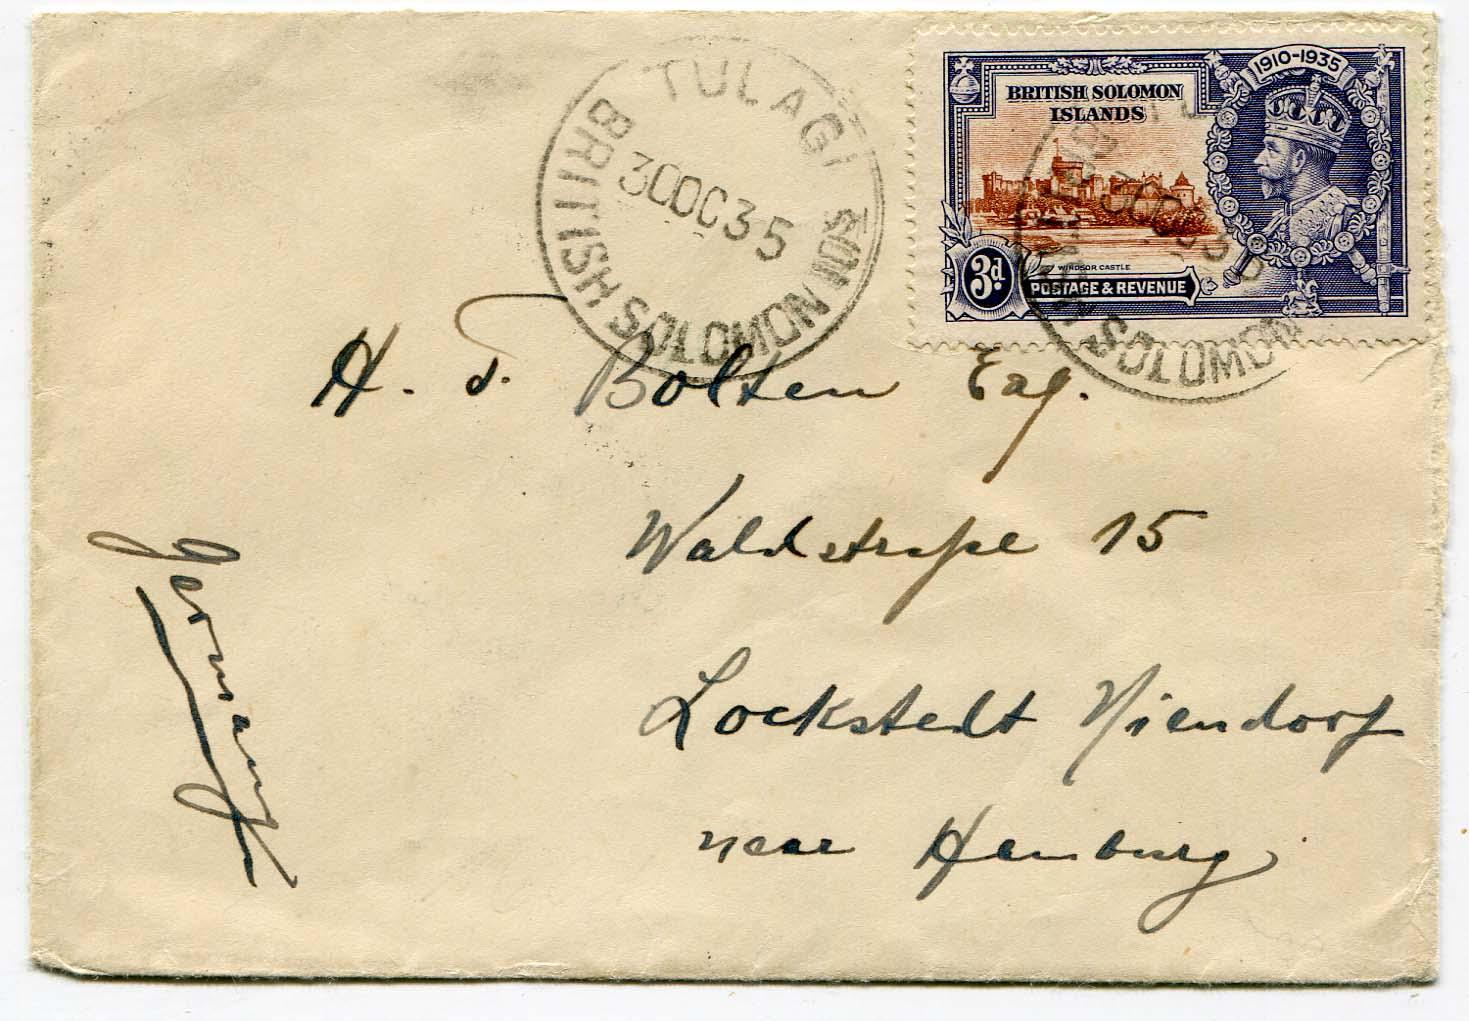 TULAGI
BRITISH SOLOMON ISDS
30OC35
1910-1935
BRITISH SOLOMON
ISLANDS
WINDSOR CASTLE
3d
POSTAGE & REVENUE
30OC35
SOLOMON
H. T. Bolten Esq.
Waldstraße 15
Lockstedt Niendorf
near Hamburg
Germany